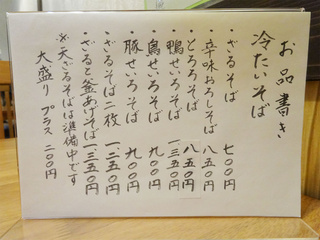 お品書き
冷たいそば
・ざるそば 七〇〇円
・辛味おろしそば 八五〇円
・とろろそば 八五〇円
・鴨せいろそば 一三五〇円
・鳥せいろそば 九〇〇円
・豚せいろそば 九〇〇円
・ざるそば二枚 一、二五〇円
・ざると釜あげそば 一、三五〇円
※天ざるそばは準備中です
大盛り プラス 二〇〇円